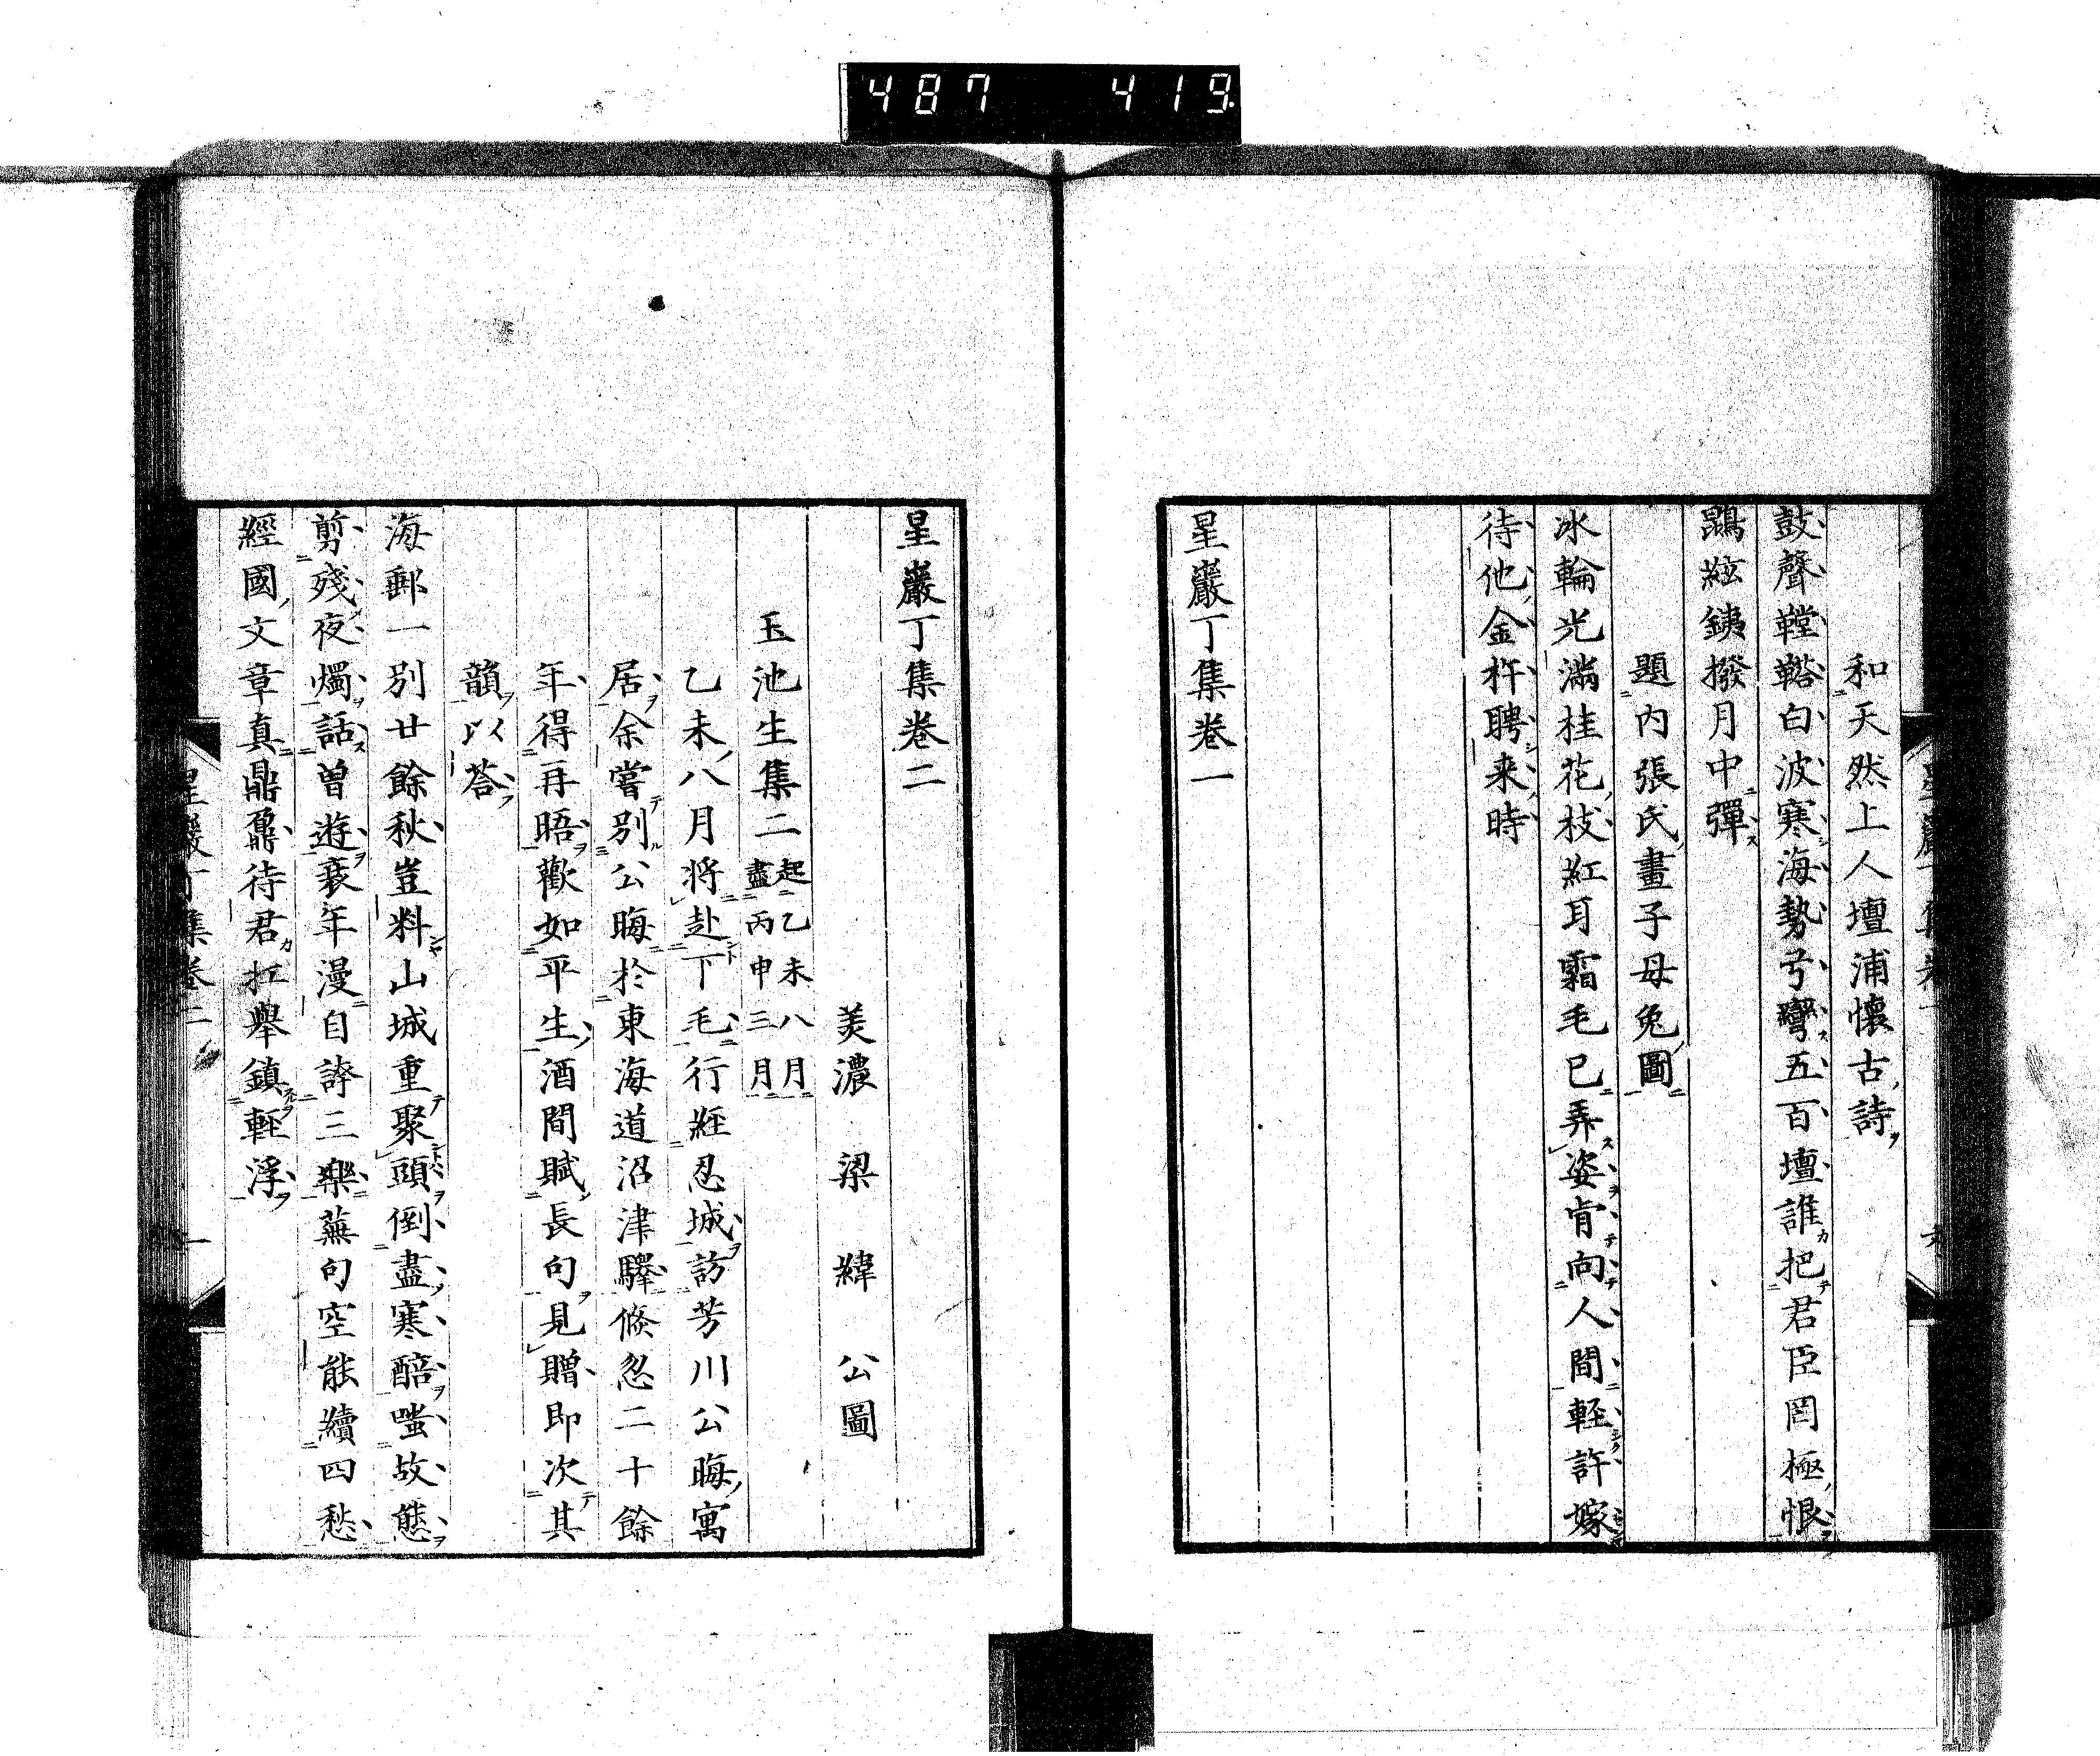 487 419
和天然上人壇浦懷古詩
鼓聲鞺鞳白波寒海勢弓彎五百壇誰把君臣罔極恨
鵾絃銕撥月中彈
題内張氏畫子母兔圖
冰輪光滿桂花枝紅耳霜毛巳弄姿肯向人間輕許嫁
待他金杵聘来時
星巖丁集卷一
星巖丁集卷二
美濃 梁 緯 公圖
玉池生集二 起乙未八月 盡丙申三月
乙未八月將赴下毛行經忍城訪芳川公晦寓
居余嘗別公晦於東海道沼津驛倐忽二十餘
年得再晤歡如平生酒間賦長句見贈即次其
韻以荅
海郵一別廿餘秋豈料山城重聚頭倒盡寒醅嗤故態
剪殘夜燭話曽遊衰年漫自誇三樂蕪句空能續四愁
經國文章真鼎鼐待君扛舉鎮輕浮
星巖丁集卷二 一